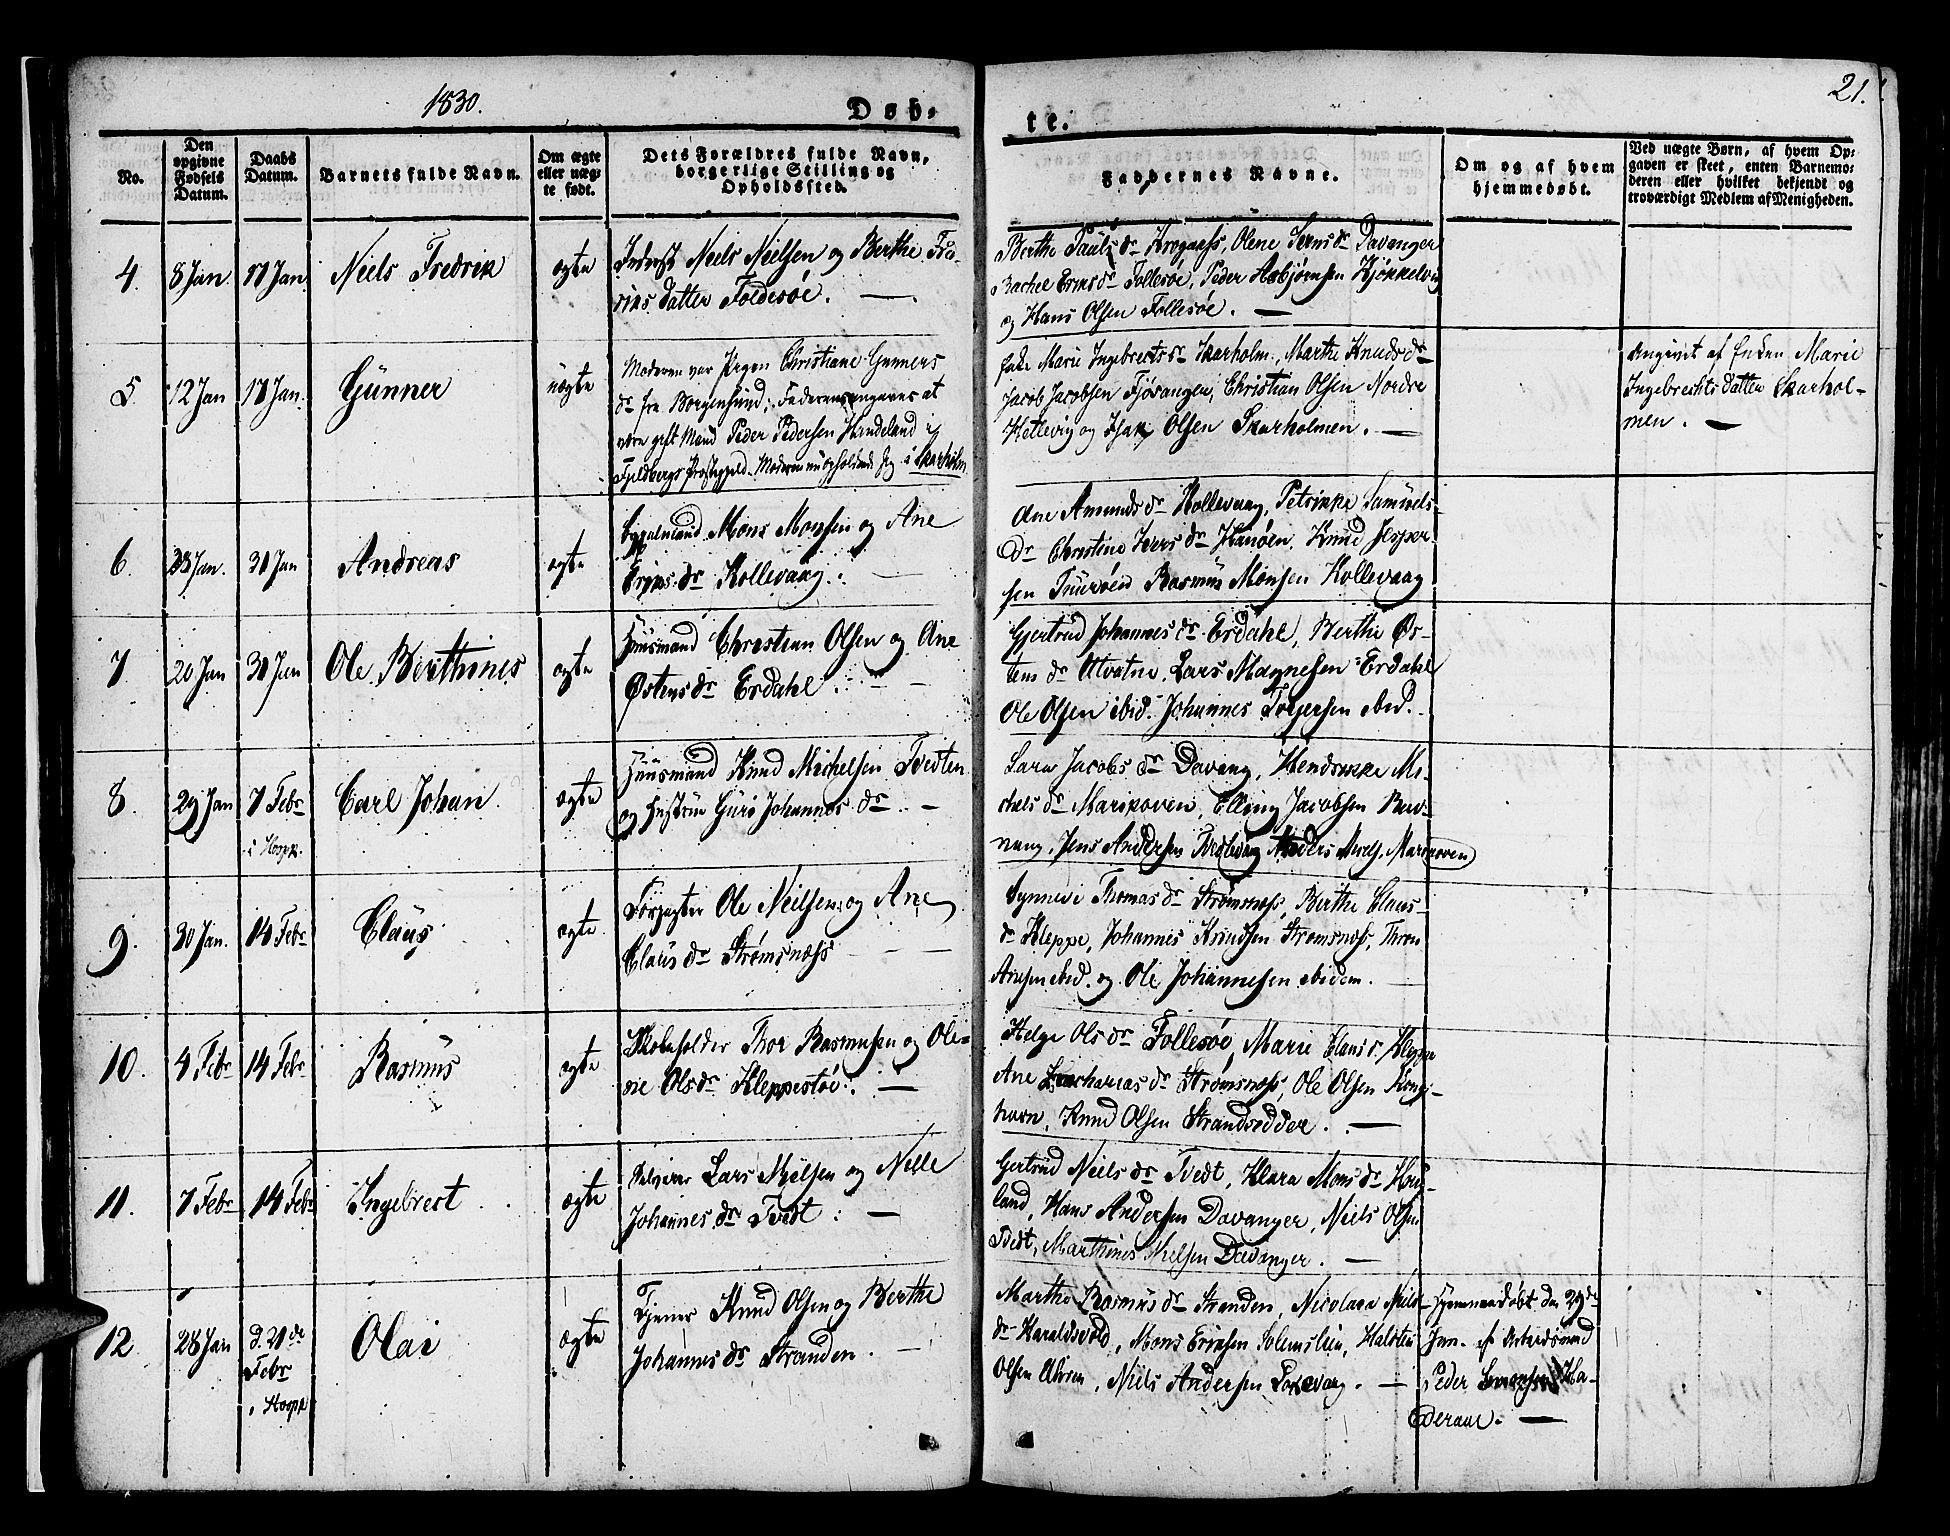 1830.
Døb-
te.
21.
No.
Den opgivne Fødsels Datum.
Daabs Datum.
Barnets fulde Navn.
Om ægte eller uægte født.
Dets Forældres fulde Navn, borgerlige Stilling og Opholdssted.
Faddernes Navne.
Om og af hvem hjemmedøbt.
Ved uægte Børn, af hvem Opgaven er skeet, enten Barnemoderen eller hvilket bekjendt og troværdigt Medlem af Menigheden.
4. 8 Jan. 17 Jan. Niels Fredrik ægte
Inderst Niels Nielsen og Berthe
datter Foldesøe.
Berthe Pauls dr Krogaass, Olene Iverns dr Davanger
Rachel Erins dr Follesøe, Peder Asbjørnsen Kjøkkelvig
og Hans Olsen Follesøe.
5. 12 Jan 17 Jan. Gunner uægte
Moderen var Pigen Christiane Gunners
dr fra Borgensund; Faderen angaves at
være gift Mand Peder Pedersen Handeland i
Fjeldbergs Præstegjeld. Moderen nu opholdende sig i Skarholm
Enke Marie Ingebrects dr Skarholm, Marthe Knuds dr
Jacob Jacobsen Fjøsanger, Christian Olsen Nordre
Hetlevig og Isak Olsen Skarholmen.
Angivet af Enken Marie
Ingebrechts datter Skarhol-
men.
6. 23 Jan. 31 Jan Andreas ægte
Mons Monsen og Ane
Erins dr Kollevaag.
Ane Amunds dr Kollevaag, Petrikke Samuels-
dr Christine Ivers dr Hanøen, Knud Jesper-
sen Rasmus Monsen Kollevaag
7. 20 Jan 31 Jan Ole Berthines ægte
Huusmand Christian Olsen og Ane
Østens dr Erdahl.
Gjertrud Johannes dr Erdahl, Berthe Øs-
tens dr Alvatne, Lars Magnesen Erdahl
Ole Olsen ibid. Johannes Torgersen ibid.
8. 29 Jan 7 Febr Carl Johan ægte
i Hopp.
Huusmand Knud Michelsen Tvedten
og Hustrue Guro Johannes dr
Lara Jacobs dr Davang, Hendrikke Mi-
chels dr Marikoven, Elling Jacobsen
Jens Andersen Anders Marikoven
9. 30 Jan. 14 Febr Claus ægte
Ole Nielsen og Ane
Claus dr Strømsnæss
Synneve Thomas dr Strømsnæss, Berthe Claus-
dr Kleppe, Johannes Knudsen Strømsnæss,
ibid. og Ole Johannesen ibidem.
10. 4 Febr 14 Febr Rasmus ægte
Thor Rasmusen og Ole-
ne Ols dr Kleppestøe.
Helge Ols dr Follesøe, Marie Claus dr Kleppe
Ane Zacharias dr Strømsnæss, Ole Olsen Kongs-
havn, Knud Olsen Strandsødder.
11. 7 Febr 14 Febr Ingebrect ægte
Lars Nielsen og Nelle
Johannes dr Tvedt.
Gertrud Niels dr Tvedt, Klara Mons dr Hau-
land, Hans Andersen Davanger, Niels Olsen
Tvedt, Marthines Nielsen Davanger.
12. 28 Jan d. 21de Febr Olai ægte
i Hopp
Tjener Knud Olsen og Berthe
Johannes dr Stranden.
Marthe Rasmus dr Stranden, Nicolara Niels
dr Haraldsvold, Mons Erinsen Solemslien, Halsten
Olsen Niels Andersen
Hjemmedøbt den 29de
Jan. af Arbeidsmand
Peder